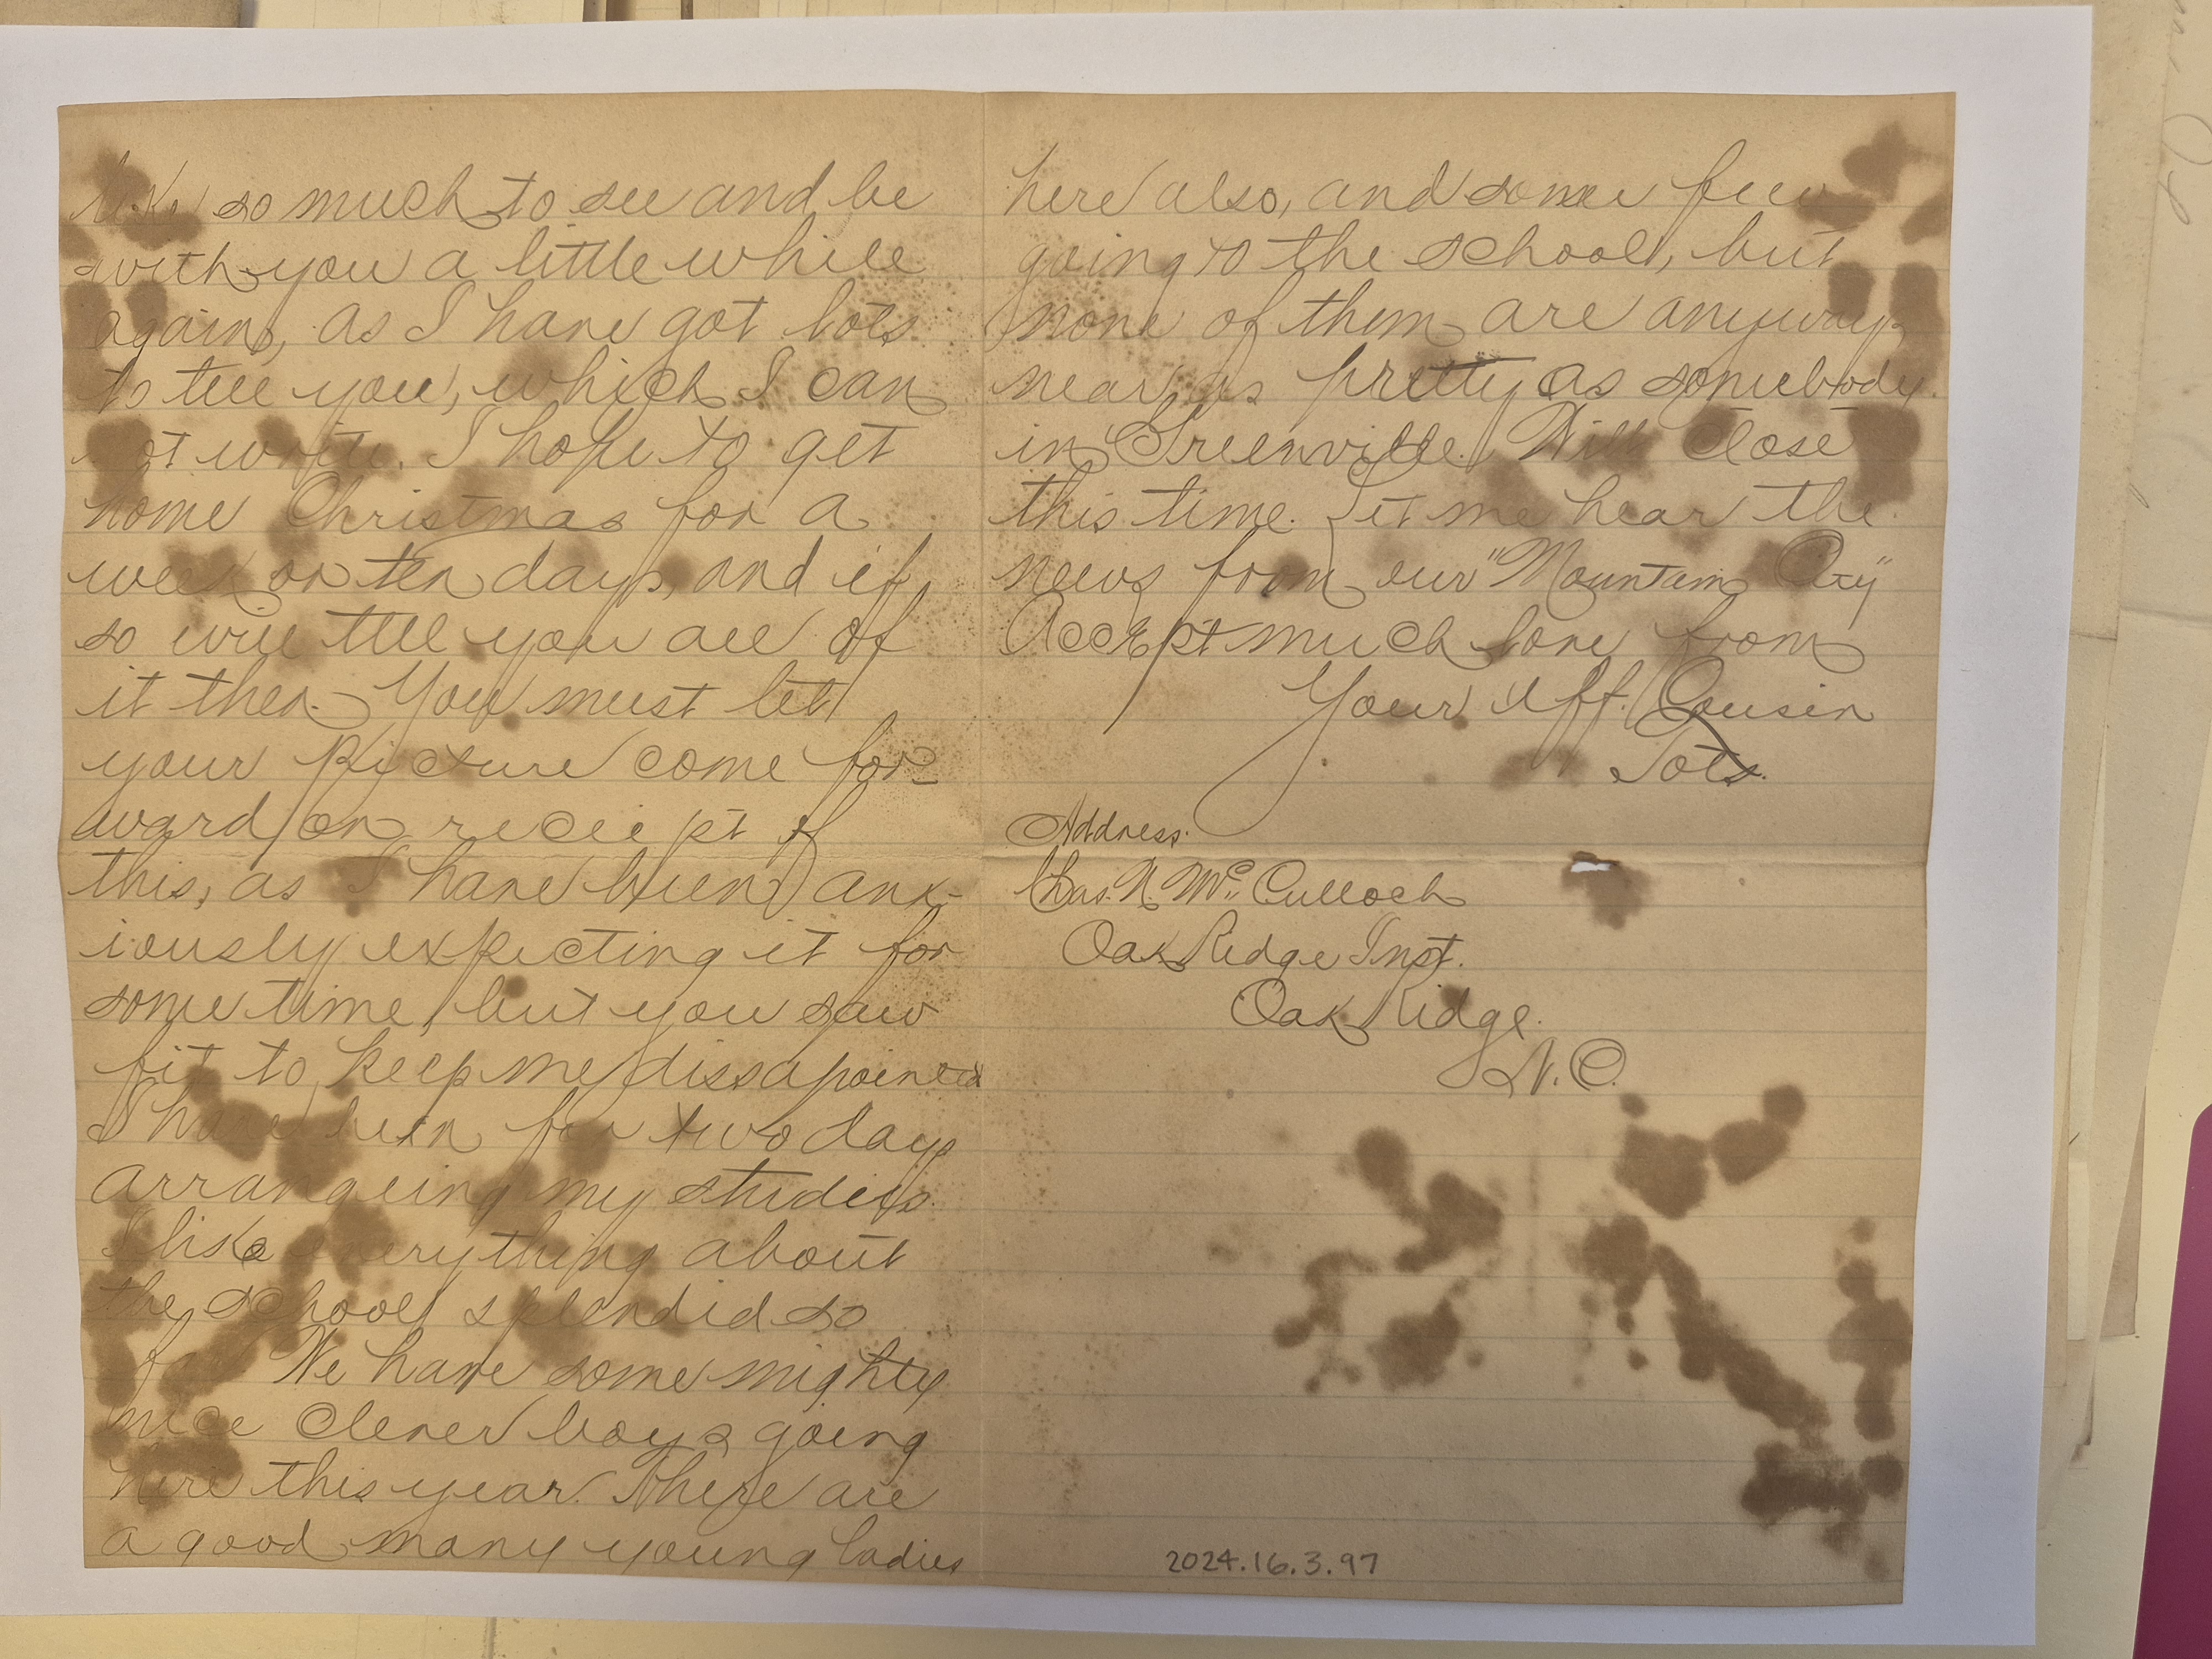 like so much to see and be
with you a little while
again, as I have got lots
to tell you, which I can
not write. I hope to get
home Christmas for a
week or ten days, and if
so will tell you all of
it then. You must let
your picture come for-
ward on reciept of
this, as I have been anx-
iously expecting it for
some time, but you saw
fit to keep me dissapointed
I have been for two days
arrangeing my studies.
I like everything about
the school splendid so
far. We have some mighty
nice clever boys going
here this year. There are
a good many young ladies
here also, and some few
going to the school, but
none of them are anyways
near as pretty as somebody
in Greenville. Will close
this time. Let me hear the
news from our "Mountain City"
Accept much love from
Your Aff. Cousin
Tots.
Address.
Chas. N. McCulloch
Oak Ridge Inst.
Oak Ridge.
N.C.
2024.16.3.97